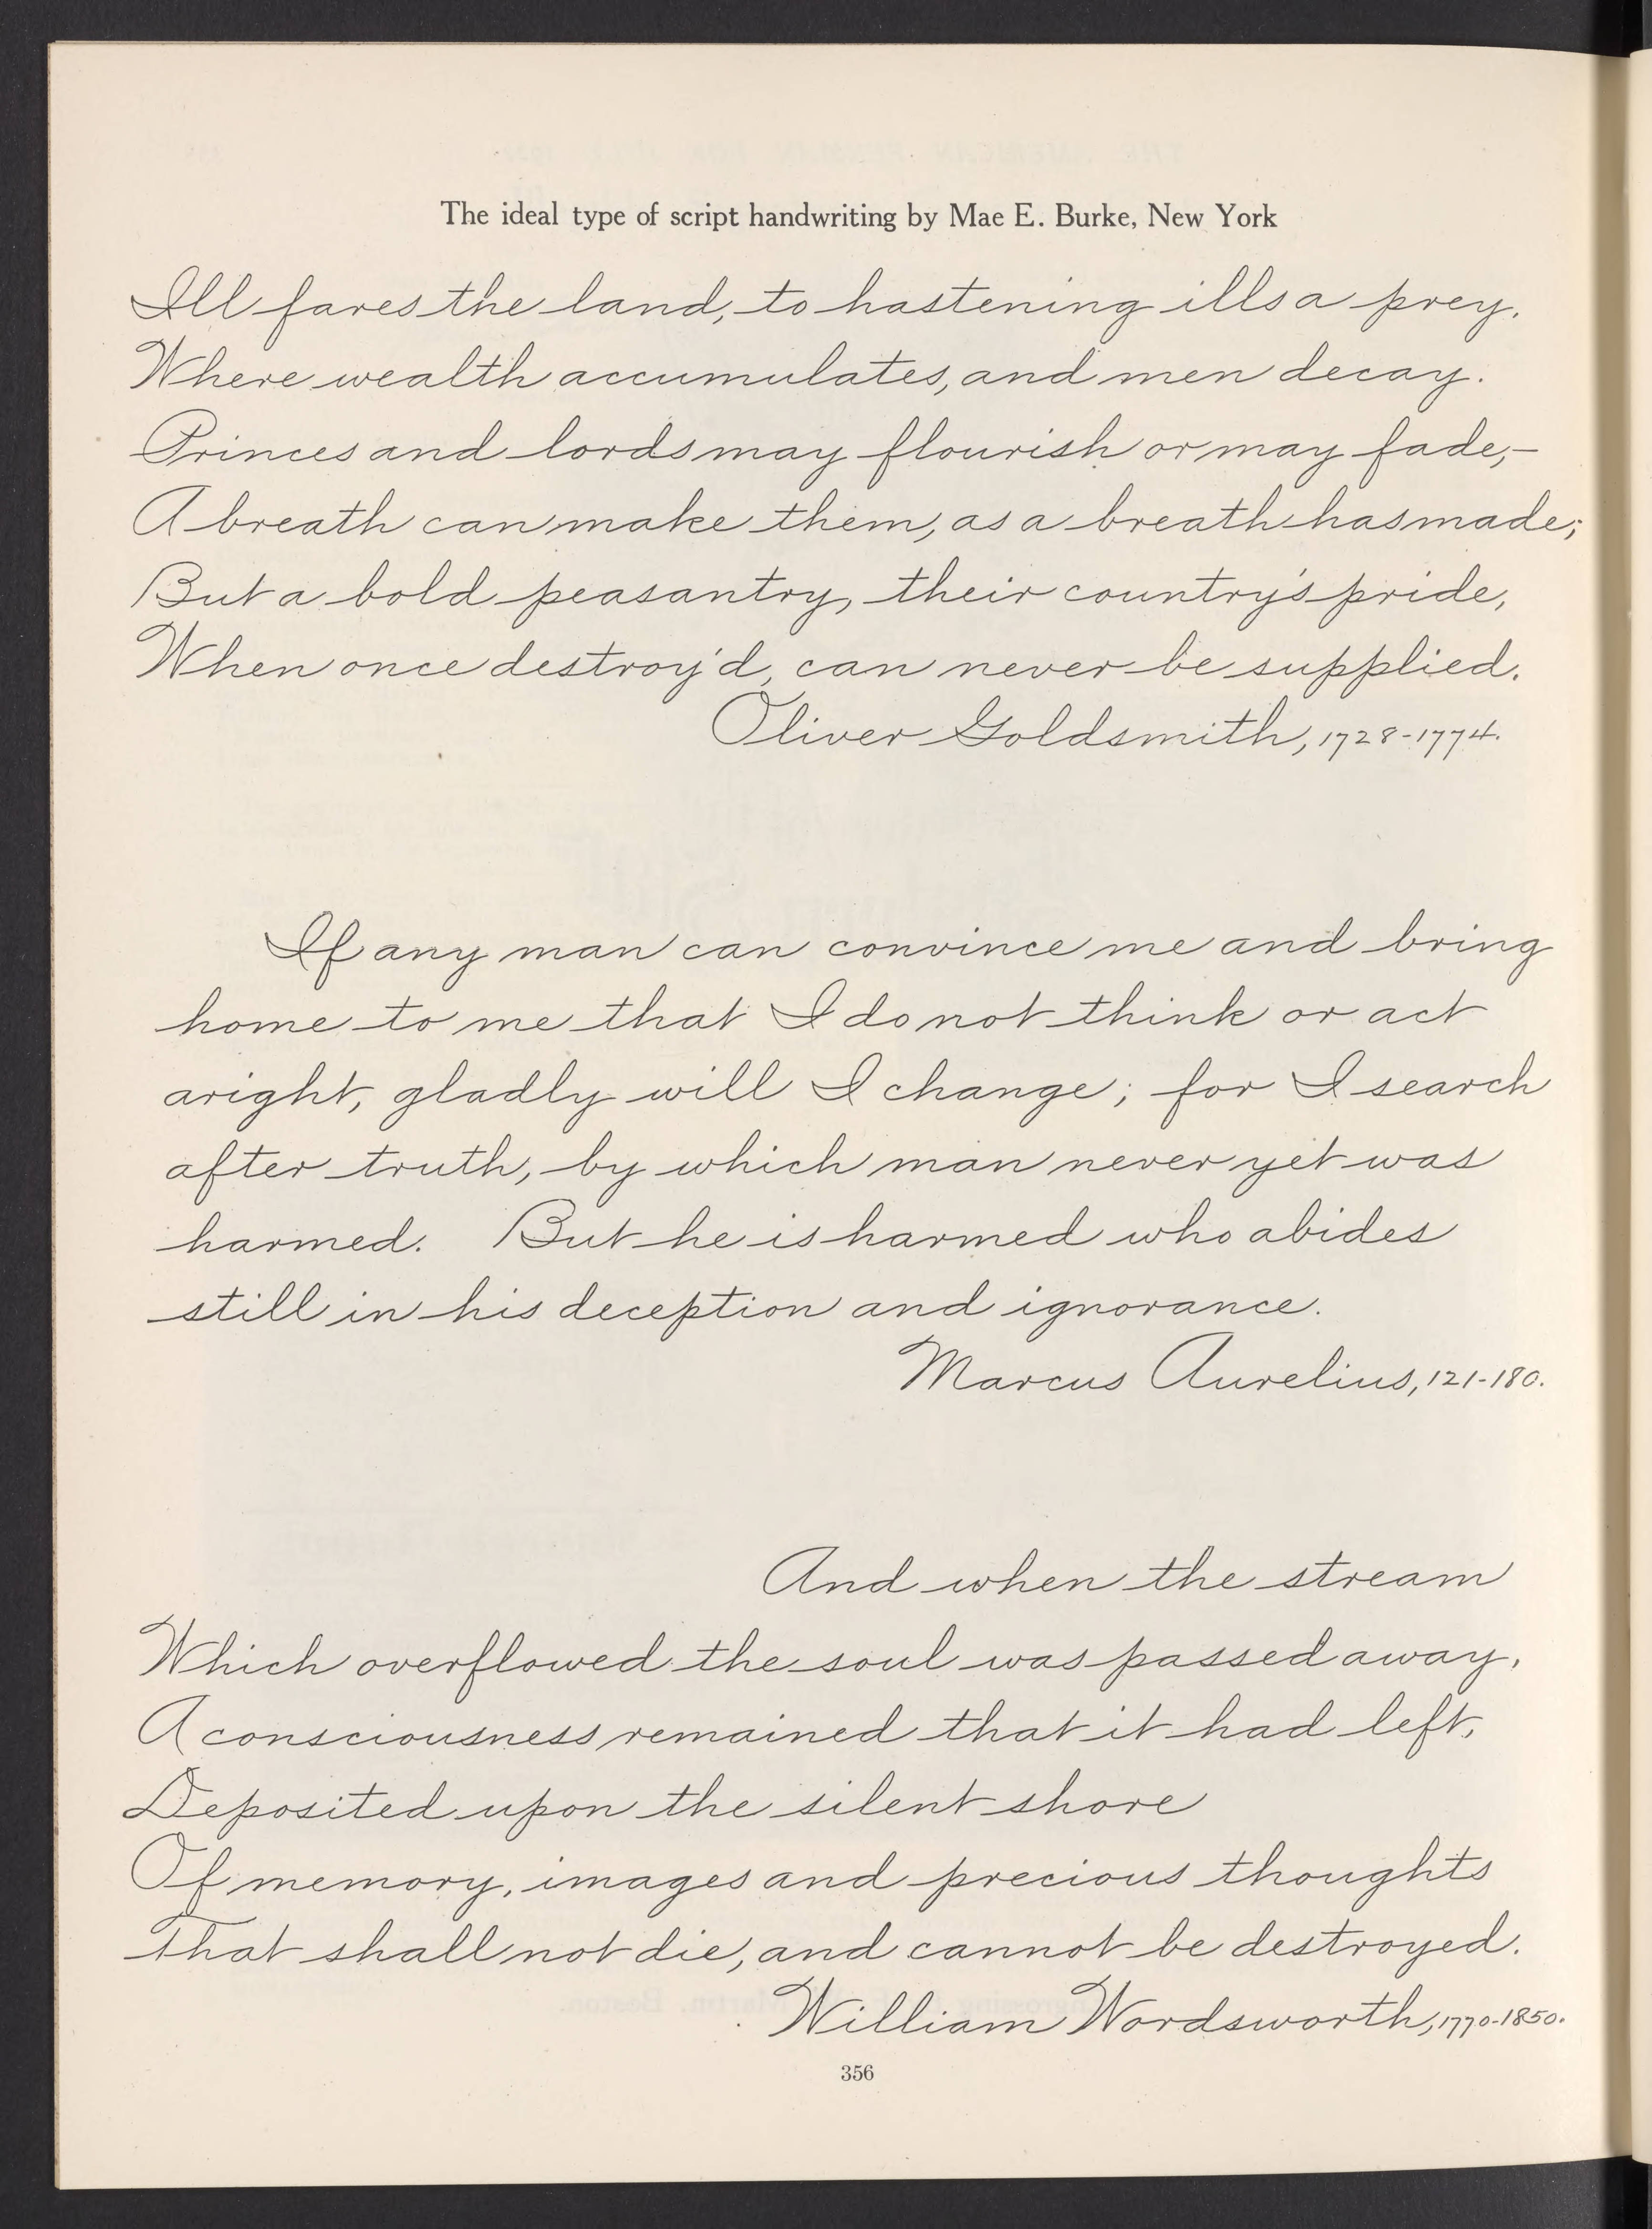 The ideal type of script handwriting by Mae E. Burke, New York
Ill fares the land, to hastening ills a prey,
Where wealth accumulates, and men decay.
Princes and lords may flourish or may fade,-
A breath can make them, as a breath has made;
But a bold peasantry, their country's pride,
When once destroy'd, can never be supplied.
Oliver Goldsmith, 1728-1774.
If any man can convince me and bring
home to me that I do not think or act
aright, gladly will I change; for I search
after truth, by which man never yet was
harmed. But he is harmed who abides
still in his deception and ignorance.
Marcus Aurelius, 121-180.
And when the stream
Which overflowed the soul was passed away,
A consciousness remained that it had left,
Deposited upon the silent shore
Of memory, images and precious thoughts
That shall not die, and cannot be destroyed.
William Wordsworth, 1770-1850.
356